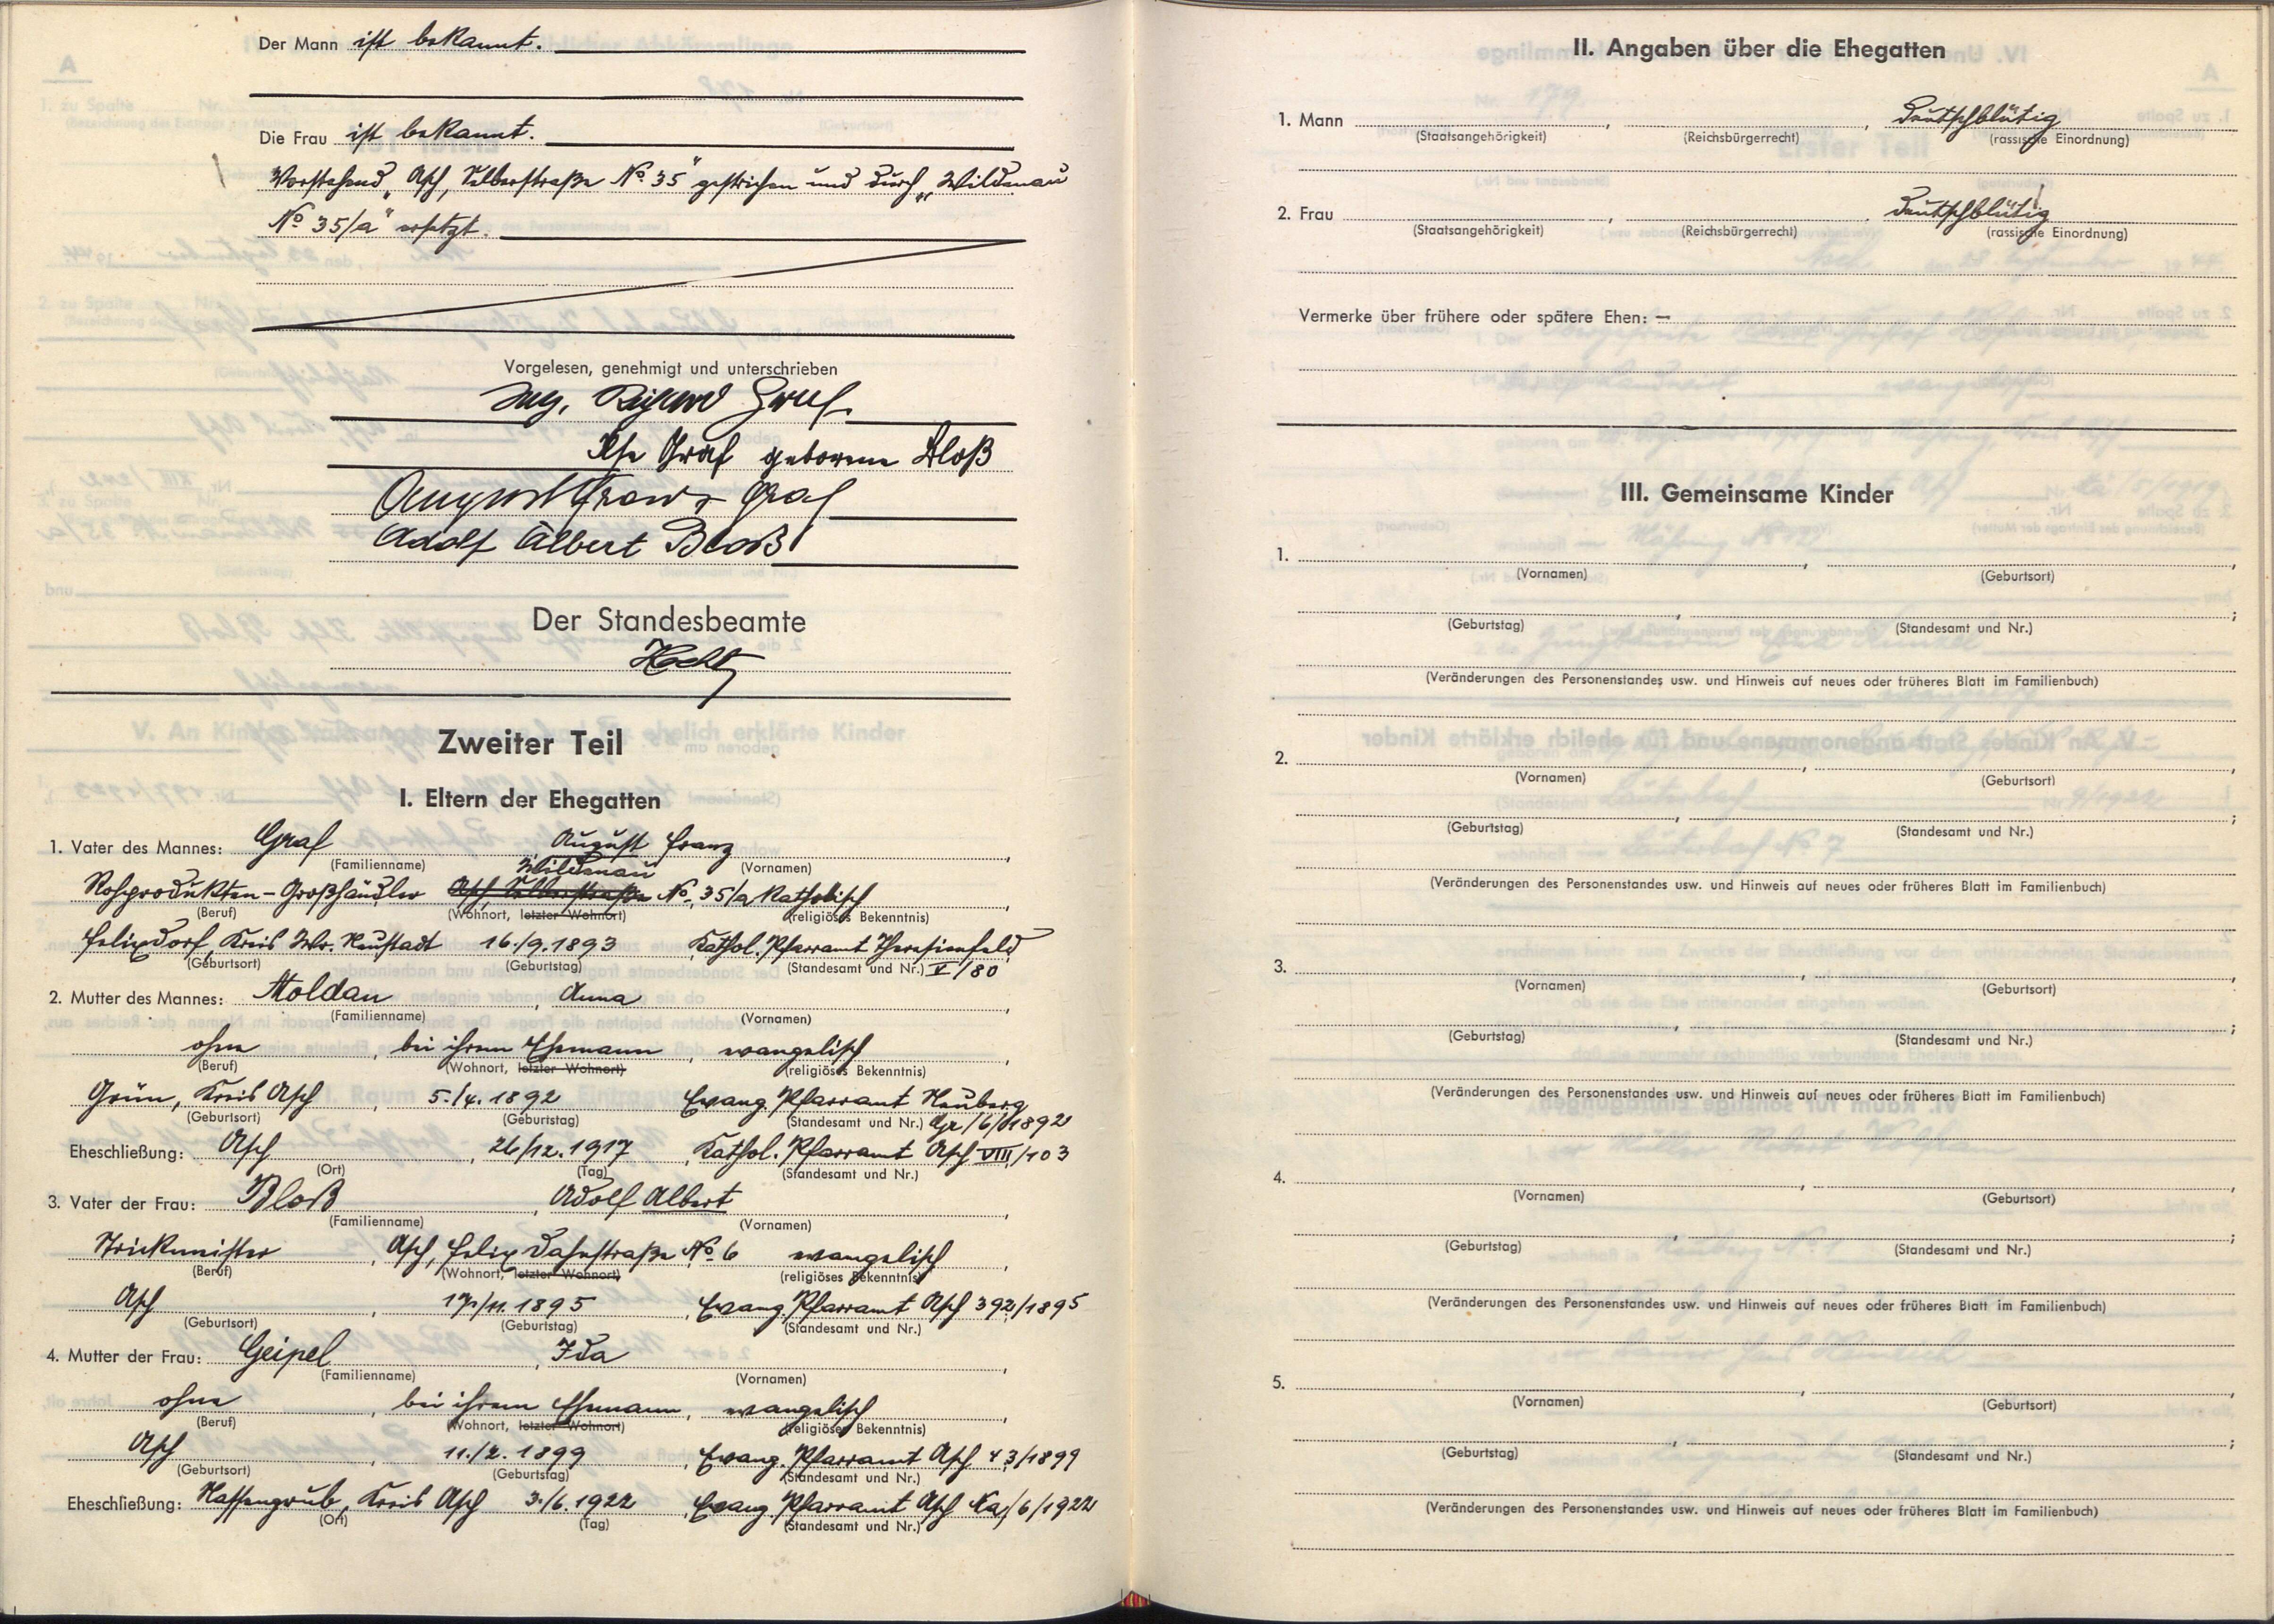 Der Mann ist bekannt.
Die Frau ist bekannt.
Vorstehend „Asch, Selberstraße No 35" gestrichen und durch „Wildenau
No 35/a" ersetzt.
Vorgelesen, genehmigt und unterschrieben
Ing. Richard Graf
Ilse Graf geborene Bloß
August Franz Graf
Adolf Albert Bloß
Der Standesbeamte
Zweiter Teil
I. Eltern der Ehegatten
1. Vater des Mannes: Graf August Franz
(Familienname) Wildenau (Vornamen)
Rohprodukten-Großhändler Asch, Selberstraße No. 35/a katholisch,
(Beruf) (Wohnort, letzter Wohnort) (religiöses Bekenntnis)
Felixdorf, Kreis Wr. Neustadt 16./9.1893 Kathol. Pfarramt Theresienfeld
(Geburtsort) (Geburtstag) (Standesamt und Nr.) V/80
2. Mutter des Mannes: Moldau, Anna,
(Familienname) (Vornamen)
ohne, bei ihrem Ehemann, evangelisch,
(Beruf) (Wohnort, letzter Wohnort) (religiöses Bekenntnis)
Grün, Kreis Asch, 5./4.1892 Evang. Pfarramt Neuberg
(Geburtsort) (Geburtstag) (Standesamt und Nr.) Gr/6/1892
Eheschließung: Asch, 26/12.1917, Kathol. Pfarramt Asch VIII/103
(Ort) (Tag) (Standesamt und Nr.)
3. Vater der Frau: Bloß, Adolf Albert,
(Familienname) (Vornamen)
Strickmeister, Asch, Felix Dahnstraße No 6 evangelisch,
(Beruf) (Wohnort, letzter Wohnort) (religiöses Bekenntnis)
Asch, 17./11.1895, Evang. Pfarramt Asch 392/1895
(Geburtsort) (Geburtstag) (Standesamt und Nr.)
4. Mutter der Frau: Geipel, Ida,
(Familienname) (Vornamen)
ohne, bei ihrem Ehemann, evangelisch,
(Beruf) (Wohnort, letzter Wohnort) (religiöses Bekenntnis)
Asch, 11./2.1899, Evang. Pfarramt Asch 43/1899
(Geburtsort) (Geburtstag) (Standesamt und Nr.)
Eheschließung: Nassengrub, Kreis Asch 3./6.1922, Evang. Pfarramt Asch Na/6/1922
(Ort) (Tag) (Standesamt und Nr.)
II. Angaben über die Ehegatten
1. Mann, , deutschblütig
(Staatsangehörigkeit) (Reichsbürgerrecht) (rassische Einordnung)
2. Frau, , deutschblütig
(Staatsangehörigkeit) (Reichsbürgerrecht) (rassische Einordnung)
Vermerke über frühere oder spätere Ehen: —
III. Gemeinsame Kinder
1.
(Vornamen) (Geburtsort)
(Geburtstag) (Standesamt und Nr.)
(Veränderungen des Personenstandes usw. und Hinweis auf neues oder früheres Blatt im Familienbuch)
2.
(Vornamen) (Geburtsort)
(Geburtstag) (Standesamt und Nr.)
(Veränderungen des Personenstandes usw. und Hinweis auf neues oder früheres Blatt im Familienbuch)
3.
(Vornamen) (Geburtsort)
(Geburtstag) (Standesamt und Nr.)
(Veränderungen des Personenstandes usw. und Hinweis auf neues oder früheres Blatt im Familienbuch)
4.
(Vornamen) (Geburtsort)
(Geburtstag) (Standesamt und Nr.)
(Veränderungen des Personenstandes usw. und Hinweis auf neues oder früheres Blatt im Familienbuch)
5.
(Vornamen) (Geburtsort)
(Geburtstag) (Standesamt und Nr.)
(Veränderungen des Personenstandes usw. und Hinweis auf neues oder früheres Blatt im Familienbuch)